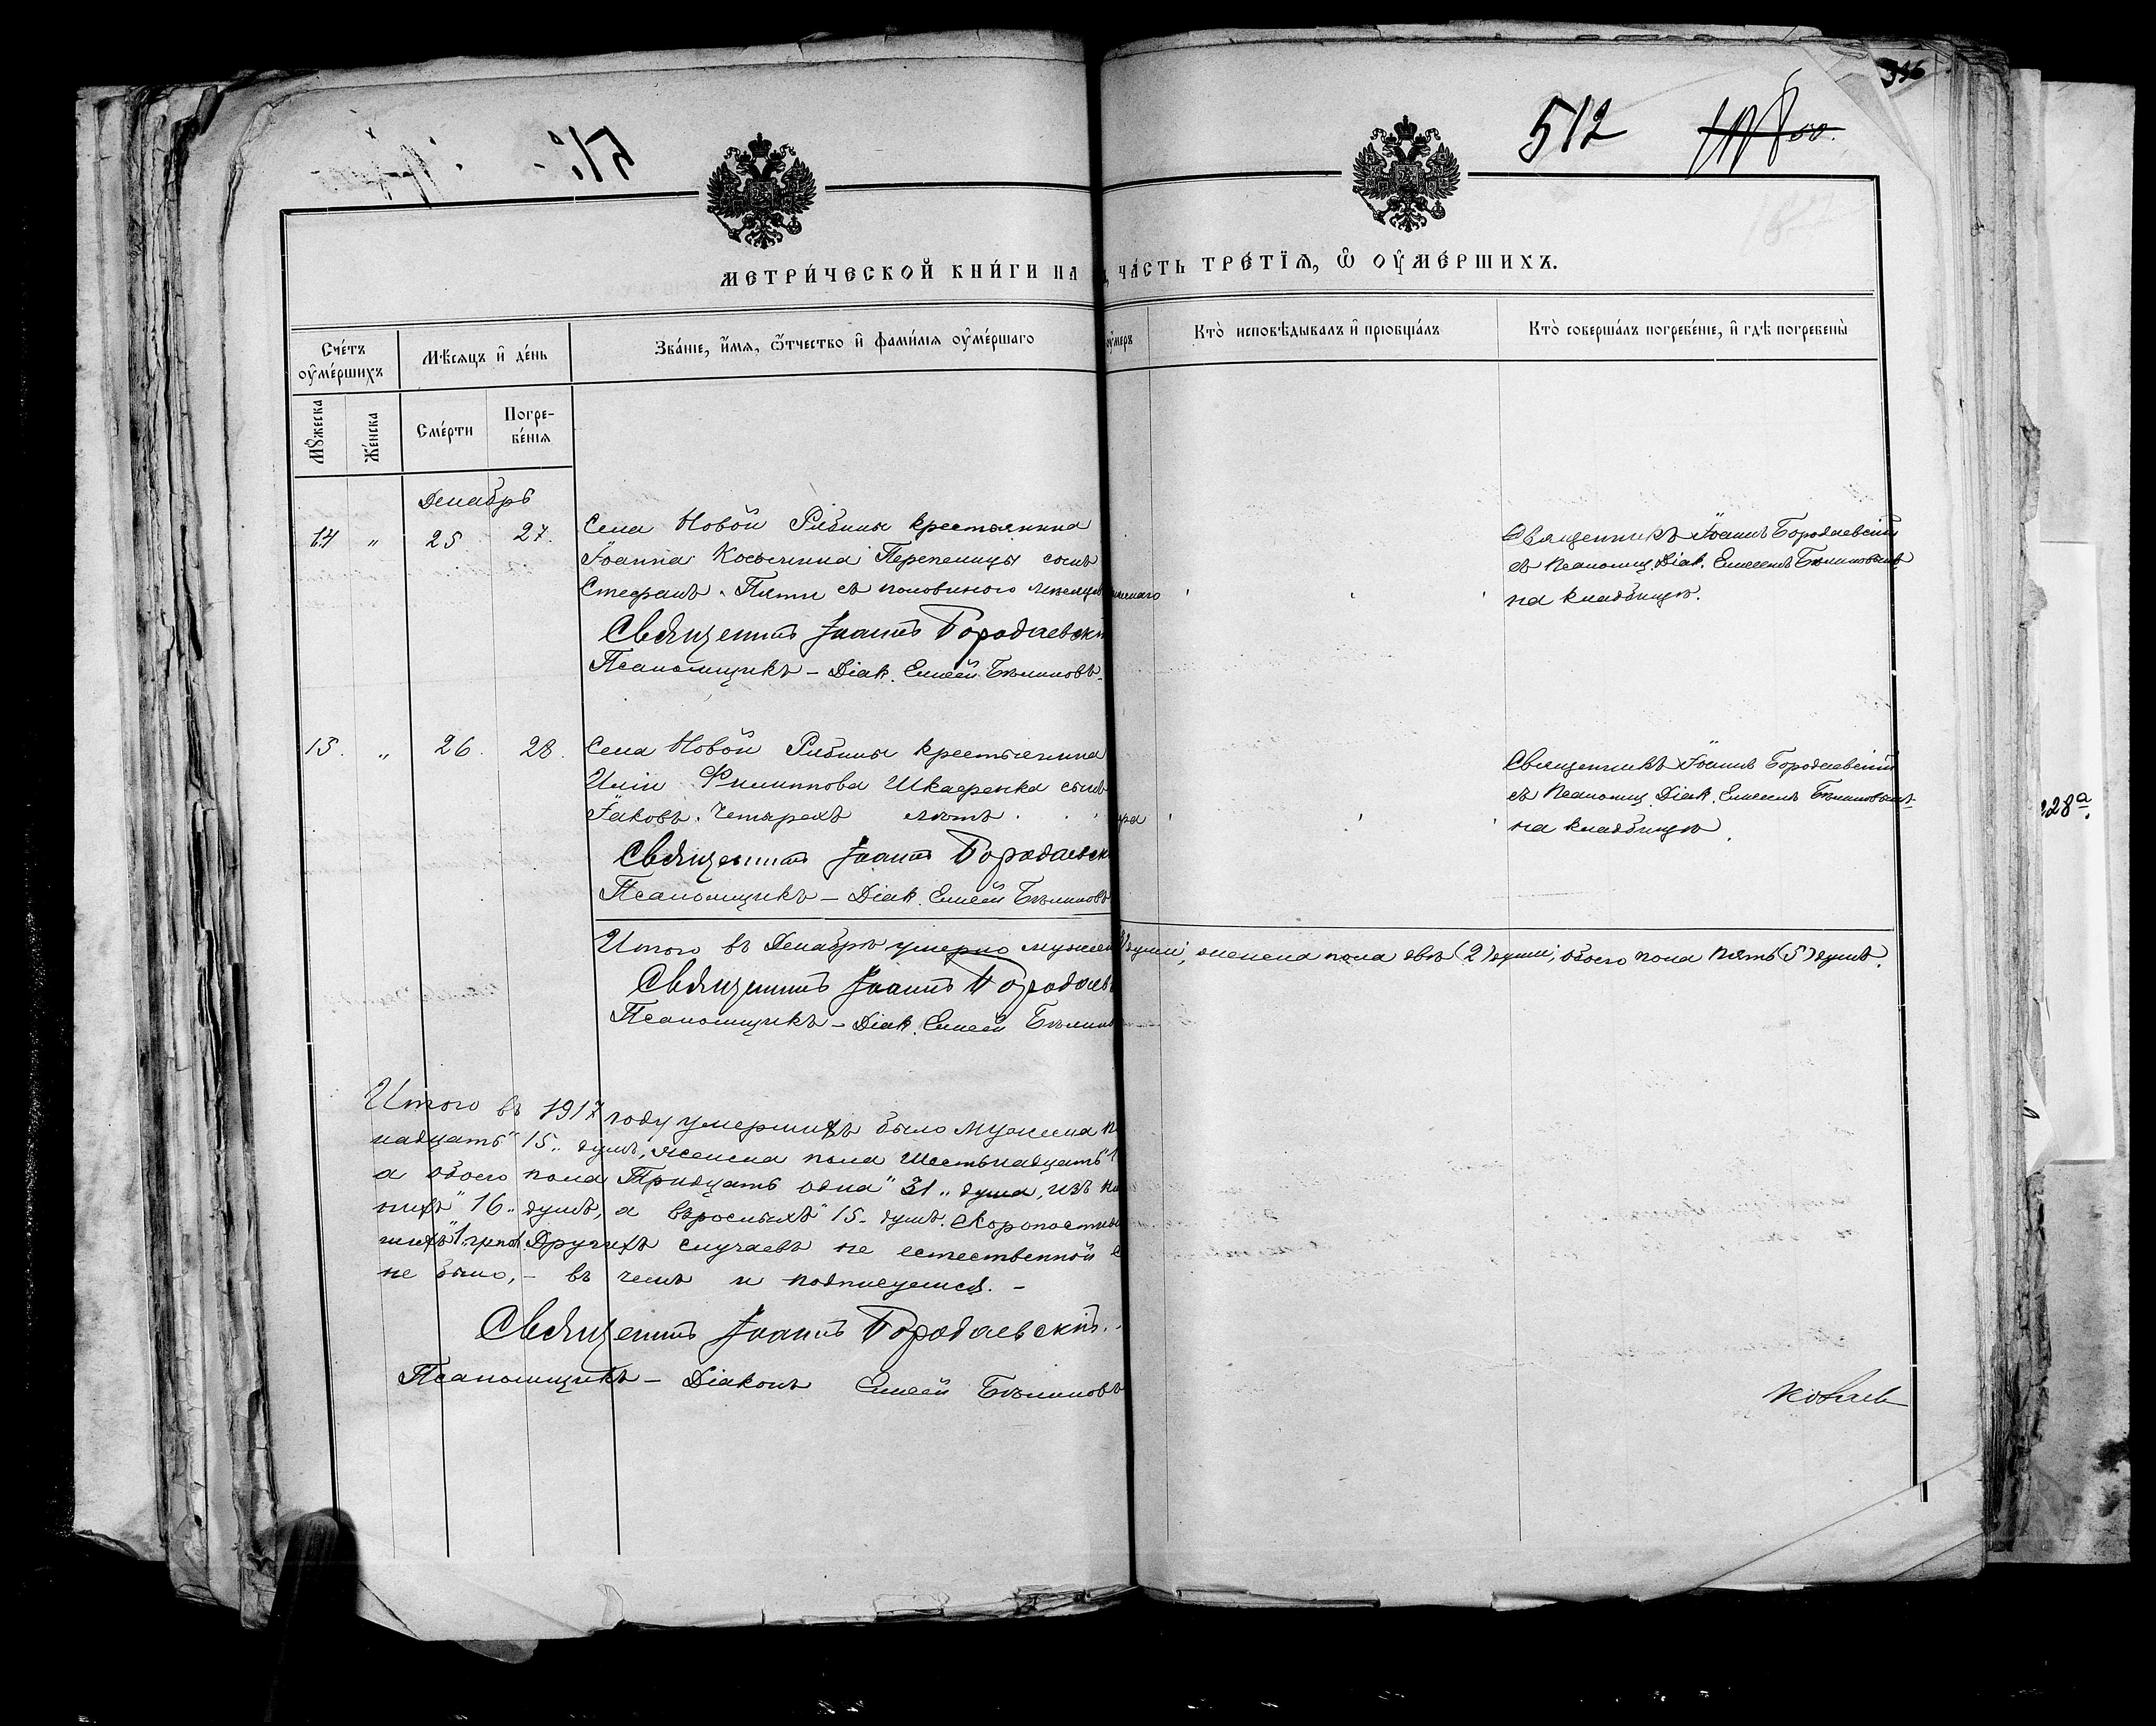 512
МЕТРИ́ЧЕСКОЙ КНИ́ГИ НА
ЧА́СТЬ ТРЕ́ТІѦ, Ѡ ОУМЕ́РШИХЪ.
Сче́тъ оуме́ршихъ
Мѣсяцъ и де́нь
Зва́ніе, и́мя, ѻтчество и фами́лія оуме́ршаго
оумеръ
Кто̀ исповѣдывалъ и пріобща́лъ
Кто̀ соверша́лъ погребе́ніе, и гдѣ погребены̀
Мꙋжеска
Же́нска
Сме́рти
Погре-
бе́нія
Декабрь
14 " 25 27. Села Новой Рябины крестьянина
Іоанна Косьмина Перепелицы сынъ
Стефанъ. Пяти съ половиною
Священникъ Іоаннъ Городаевскі
Псаломщикъ – Діак. Елисей Бѣлиновъ.
Священникъ Іоаннъ Городаевскій
съ Псаломщ. Діак. Елисеемъ Бѣлиновымъ
на кладбищѣ.
15. " 26. 28. Села Новой Рябины крестьянина
Иліи Филиппова Шкафенка сынъ
Іаковъ. Четырехъ лѣтъ
Священникъ Іоаннъ Городаевск
Псаломщикъ – Діак. Елисей Бѣлиновъ
Священникъ Іоаннъ Городаевскій
съ Псаломщ. Діак. Елисеемъ Бѣлиновымъ
на кладбищѣ
Итого въ Декабрѣ умерло мужеск души, женска пола двѣ (2) души, обоего пола пять (5) душъ.
Священникъ Іоаннъ Городаев
Псаломщикъ – Діак. Елисей Бѣлин
Итого въ 1917 году умершихъ было мужеска п
надцать "15" душъ, женска пола шестьнадцать "1
а обоего пола Тридцать одна "31" душа, изъ
нихъ "16" душъ, а взрослыхъ "15" душъ. Скоропостиж
шихъ "1" Другихъ случаевъ не естественной с
не было, – въ чемъ и подписуемся. –
Священникъ Іоаннъ Городаевскій.
Псаломщикъ – Діаконъ Елисей Бѣлиновъ
228а.